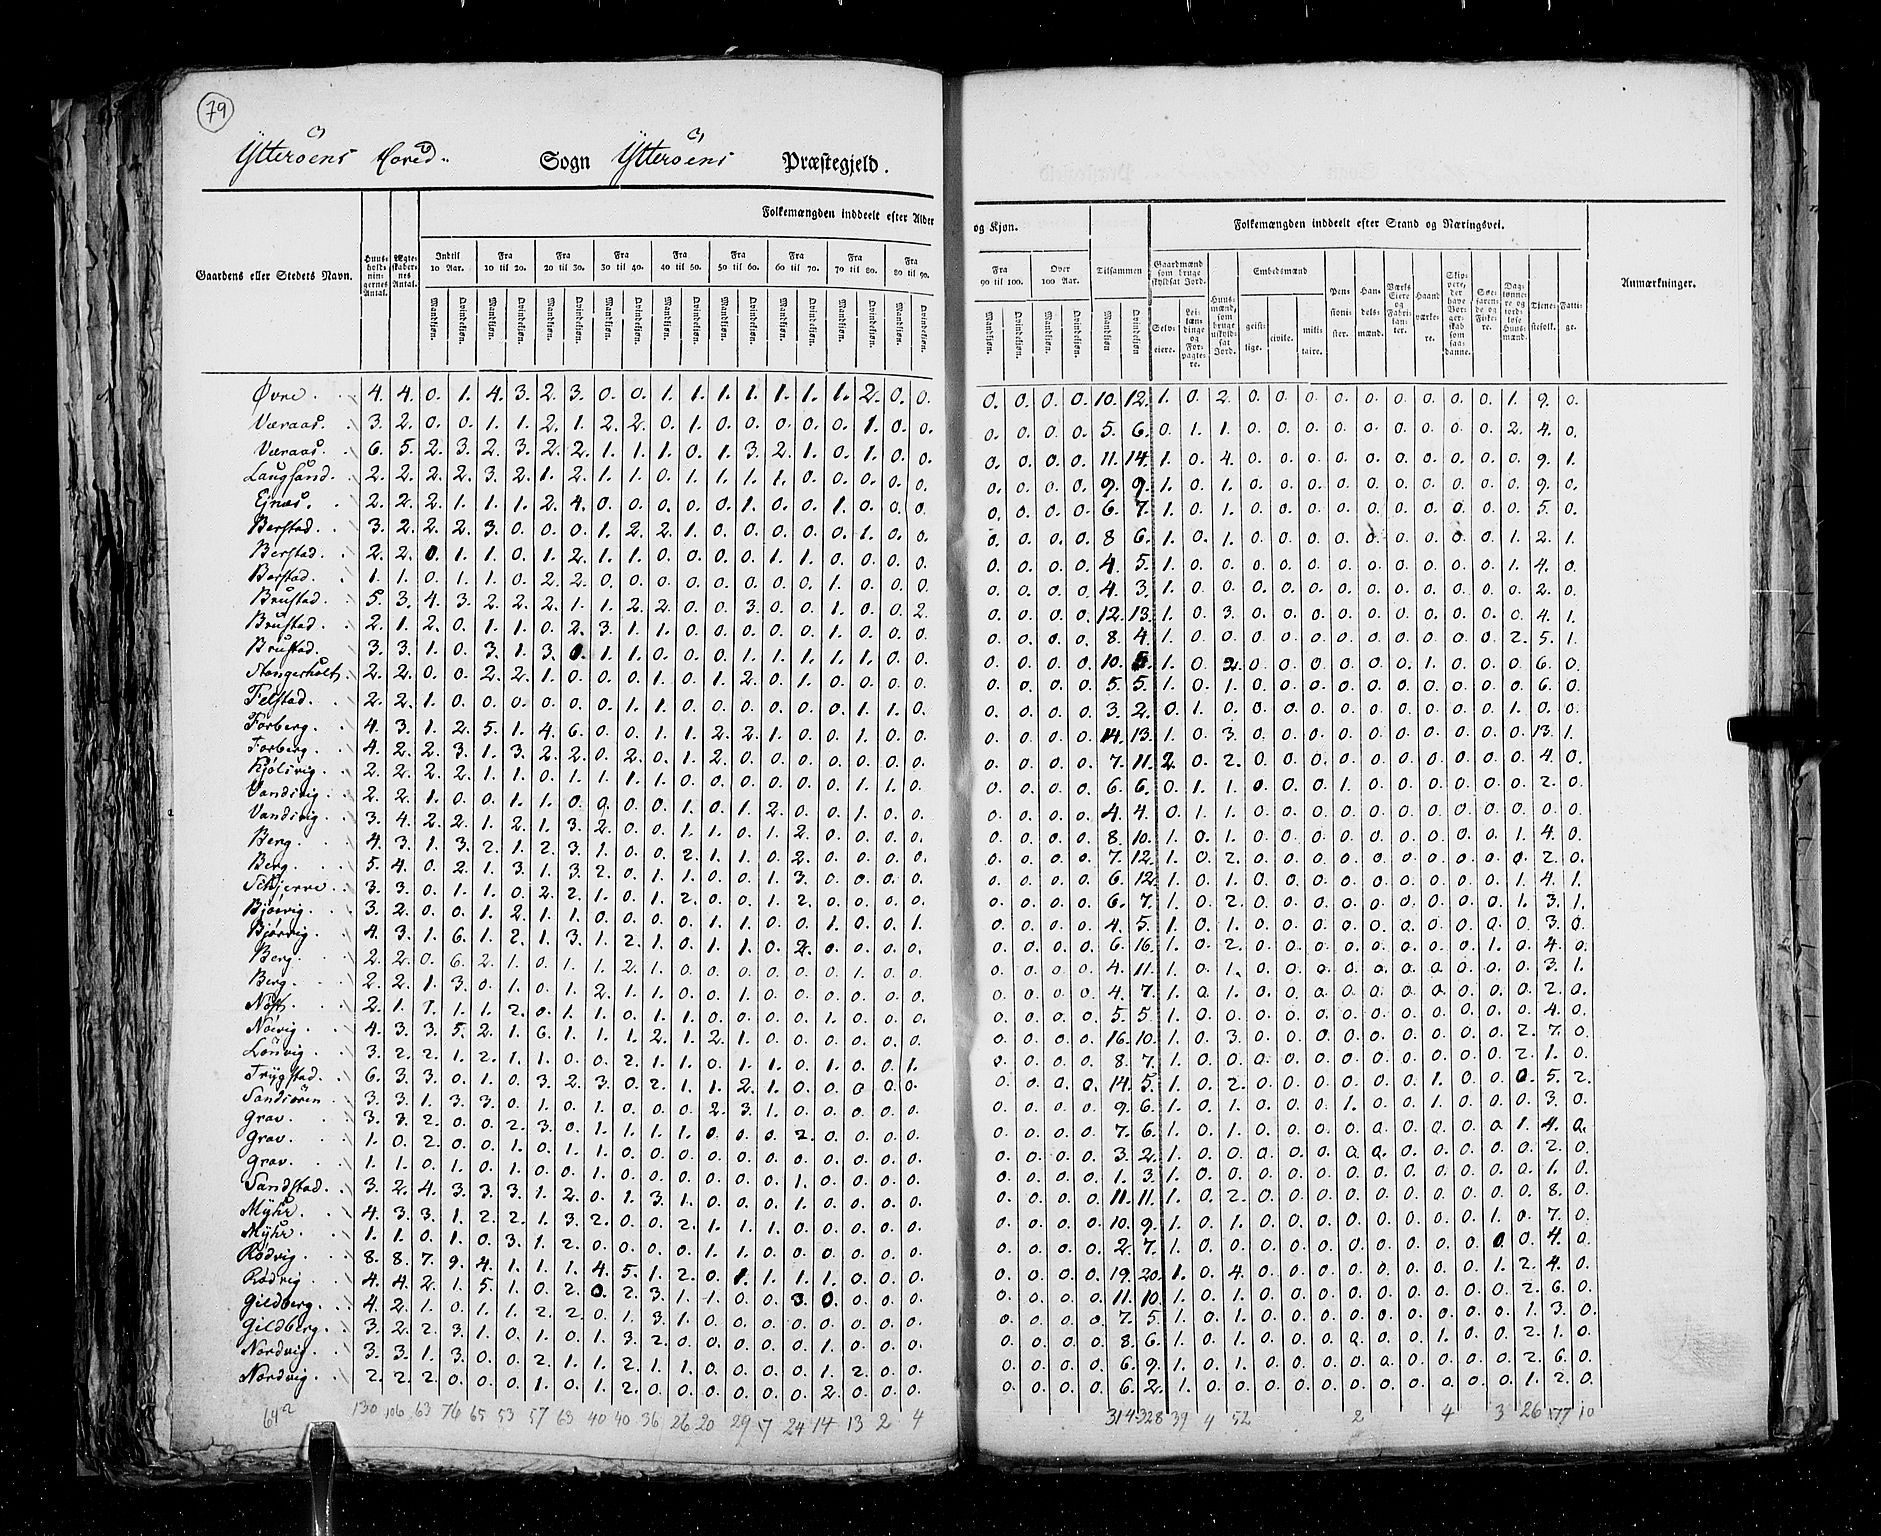 79
Ytterøens Hoved- Sogn Ytterøens Præstegjeld.
Folkemængden inddeelt efter Alder og Kjøn.
Folkemængden inddeelt efter Stand og Næringsvei.
Gaardens eller Stedets Navn.
Huusholdningernes Antal.
Ægteskabernes Antal.
Indtil 10 Aar.
Fra 10 til 20.
Fra 20 til 30.
Fra 30 til 40.
Fra 40 til 50.
Fra 50 til 60.
Fra 60 til 70.
Fra 70 til 80.
Fra 80 til 90.
Fra 90 til 100.
Over 100 Aar.
Tilsammen
Mandkjøn. Qvindekjøn.
Gaardmænd som bruge skyldsat Jord.
Selveiere.
Leilændinge og Forpagtere.
Huusmænd, som bruge uskyldsat Jord.
Embedsmænd
geistlige. civile. militaire.
Pensionister.
Handelsmænd.
Værks Eiere og Fabrikanter.
Haandværkere.
Skippere, der have Borgerskab som saadanne.
Søefarende og Fiskere.
Daglønnere og jordløse Huusmænd.
Tjenestefolk.
Fattige.
Anmærkninger.
Øvre. 4. 4. 0. 1. 4. 3. 2. 3. 0. 0. 1. 1. 1. 1. 1. 1. 1. 2. 0. 0. 0. 0. 0. 0. 10. 12. 1. 0. 2. 0. 0. 0. 0. 0. 0. 0. 0. 0. 1. 9. 0.
Væraas. 3. 2. 0. 0. 1. 1. 2. 1. 2. 2. 0. 1. 0. 0. 0. 0. 0. 1. 0. 0. 0. 0. 0. 0. 5. 6. 0. 1. 1. 0. 0. 0. 0. 0. 0. 0. 0. 0. 2. 4. 0.
Væraas. 6. 5. 2. 3. 2. 3. 2. 2. 1. 1. 1. 0. 1. 3. 2. 1. 0. 1. 0. 0. 0. 0. 0. 0. 11. 14. 1. 0. 4. 0. 0. 0. 0. 0. 0. 0. 0. 0. 0. 9. 1.
Laugsand. 2. 2. 2. 2. 3. 2. 1. 2. 1. 1. 0. 1. 1. 1. 1. 0. 0. 0. 0. 0. 0. 0. 0. 0. 9. 9. 1. 0. 1. 0. 0. 0. 0. 0. 0. 0. 0. 0. 0. 9. 0.
Ejnæs. 2. 2. 2. 1. 1. 1. 2. 4. 0. 0. 0. 0. 0. 1. 0. 0. 1. 0. 0. 0. 0. 0. 0. 0. 6. 7. 1. 0. 1. 0. 0. 0. 0. 0. 0. 0. 0. 0. 0. 5. 0.
Berstad. 3. 2. 2. 2. 3. 0. 0. 0. 1. 2. 2. 1. 0. 0. 0. 0. 0. 1. 0. 0. 0. 0. 0. 0. 8 6. 1. 0. 1. 0. 0. 0. 0. 0. 0. 0. 0. 0. 1. 2. 1.
Berstad. 2. 2. 0. 1. 1. 0. 1. 2. 1. 1. 0. 0. 0. 0. 1. 1. 0. 0. 0. 0. 0. 0. 0. 0. 4. 5. 1. 0. 0. 0. 0. 0. 0. 0. 0. 0. 0. 0. 1. 4. 0.
Berstad. 1. 1. 0. 1. 1. 0. 2. 2. 0. 0. 0. 0. 0. 0. 0. 0. 1. 0. 0. 0. 0. 0. 0. 0. 4. 3. 1. 0. 0. 0. 0. 0. 0. 0. 0. 0. 0. 0. 0. 2. 0.
Brustad. 5. 3. 4. 3. 2. 2. 2. 1. 1. 2. 2. 0. 0. 3. 0. 0. 1. 0. 0. 2. 0. 0. 0. 0. 12. 13. 1. 0. 3. 0. 0. 0. 0. 0. 0. 0. 0. 0. 0. 4. 1.
Brustad. 2. 1. 2. 0. 1. 1. 0. 2. 3. 1. 1. 0. 0. 0. 0. 0. 1. 0. 0. 0. 0. 0. 0. 0. 8. 4. 1. 0. 0. 0. 0. 0. 0. 0. 0. 0. 0. 0. 2. 5. 1.
Brustad. 3. 3. 1. 0. 3. 1. 3. 0. 1. 1. 0. 0. 0. 1. 1. 1. 1. 1. 0. 0. 0. 0. 0. 0. 10. 5. 1. 0. 2. 0. 0. 0. 0. 0. 0. 1. 0. 0. 0. 6. 0.
2. 2. 0. 0. 2. 2. 1. 0. 0. 0. 1. 0. 1. 2. 0. 1. 0. 0. 0. 0. 0. 0. 0. 0. 5. 5. 1. 0. 1. 0. 0. 0. 0. 0. 0. 0. 0. 0. 0. 6. 0.
Felstad. 2. 2. 1. 0. 0. 0. 0. 0. 0. 1. 1. 0. 0. 0. 0. 0. 0. 1. 1. 0. 0. 0. 0. 0. 3. 2. 0. 1. 0. 0. 0. 0. 0. 0. 0. 0. 0. 0. 1. 0. 0.
Forberg. 4. 3. 1. 2. 5. 1. 4. 6. 0. 0. 1. 1. 2. 2. 1. 0. 0. 1. 0. 0. 0. 0. 0. 0. 14. 13. 1. 0. 3. 0. 0. 0. 0. 0. 0. 0. 0. 0. 0. 13. 1.
Forberg. 4. 2. 2. 3. 1. 3. 2. 2. 0. 2. 0. 1. 2. 0. 0. 0. 0. 0. 0. 0. 0. 0. 0. 0. 7. 11. 2. 0. 2. 0. 0. 0. 0. 0. 0. 0. 0. 0. 0. 4. 0.
Kjølsvig. 2. 2. 2. 2. 1. 1. 0. 1. 1. 1. 1. 0. 0. 0. 0. 0. 0. 1. 1. 0. 0. 0. 0. 0. 6. 6. 0. 1. 1. 0. 0. 0. 1. 0. 0. 0. 0. 0. 0. 2. 0.
Vandsvig. 2. 2. 1. 0. 0. 1. 1. 0. 0. 0. 0. 1. 0. 1. 2. 0. 0. 1. 0. 0. 0. 0. 0. 0. 4. 4. 0. 1. 1. 0. 0. 0. 0. 0. 0. 0. 0. 0. 0. 0. 0.
Vandsvig. 3. 4. 2. 2. 1. 2. 1. 3. 2. 0. 0. 1. 1. 0. 1. 2. 0. 0. 0. 0. 0. 0. 0. 0. 8. 10. 1. 0. 1. 0. 0. 0. 0. 0. 0. 0. 0. 0. 1. 4. 0.
Berg. 4. 3. 1. 3. 2. 1. 2. 3. 1. 0. 0. 2. 1. 1. 0. 2. 0. 0. 0. 0. 0. 0. 0. 0. 7. 12. 1. 0. 2. 0. 0. 0. 0. 0. 0. 0. 0. 0. 0. 2. 0.
Berg. 5. 4. 0. 2. 1. 3. 1. 3. 2. 0. 1. 1. 0. 0. 1. 3. 0. 0. 0. 0. 0. 0. 0. 0. 6. 12. 1. 0. 1. 0. 0. 0. 0. 0. 0. 0. 0. 0. 1. 4. 1.
Skjerve. 3. 3. 0. 1. 1. 0. 2. 2. 1. 0. 1. 2. 0. 0. 1. 2. 0. 0. 0. 0. 0. 0. 0. 0. 6. 7. 1. 0. 2. 0. 0. 0. 0. 0. 0. 0. 0. 0. 1. 3. 1.
Bjørvig. 3. 2. 0. 0. 1. 2. 1. 1. 0. 0. 0. 0. 1. 1. 0. 0. 1. 0. 0. 1. 0. 0. 0. 0. 4. 5. 1. 0. 1. 0. 0. 0. 0. 0. 0. 0. 0. 0. 0. 3. 0.
Bjørvig. 4. 3. 1. 6. 1. 2. 1. 3. 1. 2. 1. 0. 1. 1. 0. 2. 0. 0. 0. 0. 0. 0. 0. 0. 6. 16. 1. 0. 2. 0. 0. 0. 0. 0. 0. 0. 0. 1. 0. 4. 0.
Berg. 2. 2. 0. 6. 2. 1. 0. 1. 1. 2. 1. 0. 0. 0. 0. 0. 0. 1. 0. 0. 0. 0. 0. 0. 4. 11. 1. 0. 1. 0. 0. 0. 0. 0. 0. 0. 0. 0. 0. 3. 1.
Berg. 2. 2. 1. 3. 0. 1. 0. 1. 2. 1. 1. 0. 0. 1. 0. 0. 0. 0. 0. 0. 0. 0. 0. 0. 4. 7. 1. 0. 1. 0. 0. 0. 0. 0. 0. 0. 0. 0. 0. 2. 0.
2. 1. 1. 1. 1. 2. 0. 1. 1. 0. 1. 1. 0. 0. 0. 0. 1. 0. 0. 0. 0. 0. 0. 0. 5. 5. 1. 0. 0. 0. 0. 0. 0. 0. 0. 0. 0. 0. 0. 4. 0.
Nøisvig. 4. 3. 3. 5. 2. 1. 6. 1. 1. 1. 2. 1. 2. 1. 0. 0. 0. 0. 0. 0. 0. 0. 0. 0. 16. 10. 1. 0. 3. 0. 0. 0. 0. 0. 0. 0. 0. 0. 2. 7. 0.
Lønvig. 3. 2. 2. 1. 2. 1. 1. 0. 0. 2. 1. 1. 0. 1. 1. 0. 1. 0. 0. 1. 0. 0. 0. 0. 8. 7. 1. 0. 0. 0. 0. 0. 0. 0. 0. 0. 0. 0. 2. 1. 0.
Trygstad. 6. 3. 3. 0. 1. 0. 3. 2. 3. 0. 2. 1. 1. 2. 1. 0. 0. 0. 0. 0. 0. 0. 0. 0. 14. 5. 1. 0. 2. 0. 0. 0. 0. 0. 0. 1. 0. 0. 0. 5. 2.
Sandsøren 3. 3. 1. 3. 3. 0. 1. 0. 1. 0. 0. 0. 2. 3. 1. 0. 0. 0. 0. 0. 0. 0. 0. 0. 9. 6. 1. 0. 1. 0. 0. 0. 1. 0. 0. 1. 0. 0. 0. 3. 0.
Grav. 3. 3. 2. 0. 0. 2. 3. 0. 1. 1. 1. 1. 0. 0. 0. 2. 0. 0. 0. 0. 0. 0. 0. 0. 7. 6. 1. 0. 1. 0. 0. 0. 0. 0. 0. 0. 0. 0. 1. 4. 0.
Grav. 1. 0. 2. 0. 0. 1. 0. 1. 1. 0. 0. 0. 0. 0. 0. 0. 0. 0. 0. 0. 0. 0. 0. 0. 3. 2. 1. 0. 0. 0. 0. 0. 0. 0. 0. 0. 0. 0. 0. 2. 0.
Grav. 1. 1. 0. 1. 0. 1. 0. 0. 1. 0. 0. 0. 0. 0. 0. 1. 0. 0. 0. 0. 0. 0. 0. 0. 1. 3. 1. 0. 0. 0. 0. 0. 0. 0. 0. 0. 0. 0. 0. 1. 0.
Sandstad. 3. 2. 4. 3. 3. 3. 1. 2. 0. 1. 3. 1. 0. 0. 0. 1. 0. 0. 0. 0. 0. 0. 0. 0. 11. 11. 1. 0. 2. 0. 0. 0. 0. 0. 0. 0. 0. 0. 0. 8. 0.
Myhr. 4. 3. 3. 1. 2. 2. 1. 3. 2. 0. 0. 2. 1. 1. 1. 0. 0. 0. 0. 0. 0. 0. 0. 0. 10. 9. 1. 0. 1. 0. 0. 0. 0. 0. 0. 0. 0. 1. 0. 7. 0.
Myhr. 1. 1. 0. 1. 0. 3. 1. 2. 0. 0. 0. 0. 1. 1. 0. 0. 0. 0. 0. 0. 0. 0. 0. 0. 2. 7. 1. 0. 0. 0. 0. 0. 0. 0. 0. 0. 0. 0. 0. 4. 0.
Rødvig. 8. 8. 7. 9. 4. 1. 1. 1. 4. 5. 1. 2. 0. 1. 1. 1. 1. 0. 0. 0. 0. 0. 0. 0. 19. 20. 1. 0. 4. 0. 0. 0. 0. 0. 0. 0. 0. 1. 2. 4. 0.
Rødvig. 4. 4. 2. 1. 5. 1. 0. 2. 0. 2. 3. 1. 1. 0. 0. 3. 0. 0. 0. 0. 0. 0. 0. 0. 11. 10. 1. 0. 1. 0. 0. 0. 0. 0. 0. 0. 0. 0. 2. 6. 0.
Gildberg. 4. 2. 1. 0. 1. 1. 2. 2. 0. 1. 3. 1. 0. 0. 0. 0. 0. 0. 0. 0. 0. 0. 0. 0. 7. 5. 1. 0. 1. 0. 0. 0. 0. 0. 0. 0. 0. 0. 1. 3. 0.
Gildberg. 3. 2. 2. 3. 1. 0. 1. 0. 1. 3. 2. 0. 0. 0. 0. 0. 1. 0. 0. 0. 0. 0. 0. 0. 8. 6. 1. 0. 1. 0. 0. 0. 0. 0. 0. 1. 0. 0. 2. 1. 0.
Nordvig. 3. 3. 1. 3. 0. 0. 2. 1. 1. 2. 1. 1. 0. 0. 0. 0. 1. 2. 0. 0. 0. 0. 0. 0. 6. 9. 1. 0. 1. 0. 0. 0. 0. 0. 0. 0. 0. 0. 2. 6. 0.
Nordvig. 2. 2. 2. 0. 0. 0. 1. 0. 1. 2. 0. 0. 0. 0. 0. 0. 2. 0. 0. 0. 0. 0. 0. 0. 6. 2. 1. 0. 0. 0. 0. 0. 0. 0. 0. 0. 0. 0. 1. 2. 0.
642 130 106 63 76 65 53 57 63 40 40 36 26 20 29 17 24 14 13 2 4 314 328 39 4 52 2 4 3 26 177 10